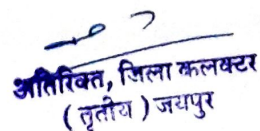 अतिरिक्त, जिला कलक्टर
( तृतीय ) जयपुर